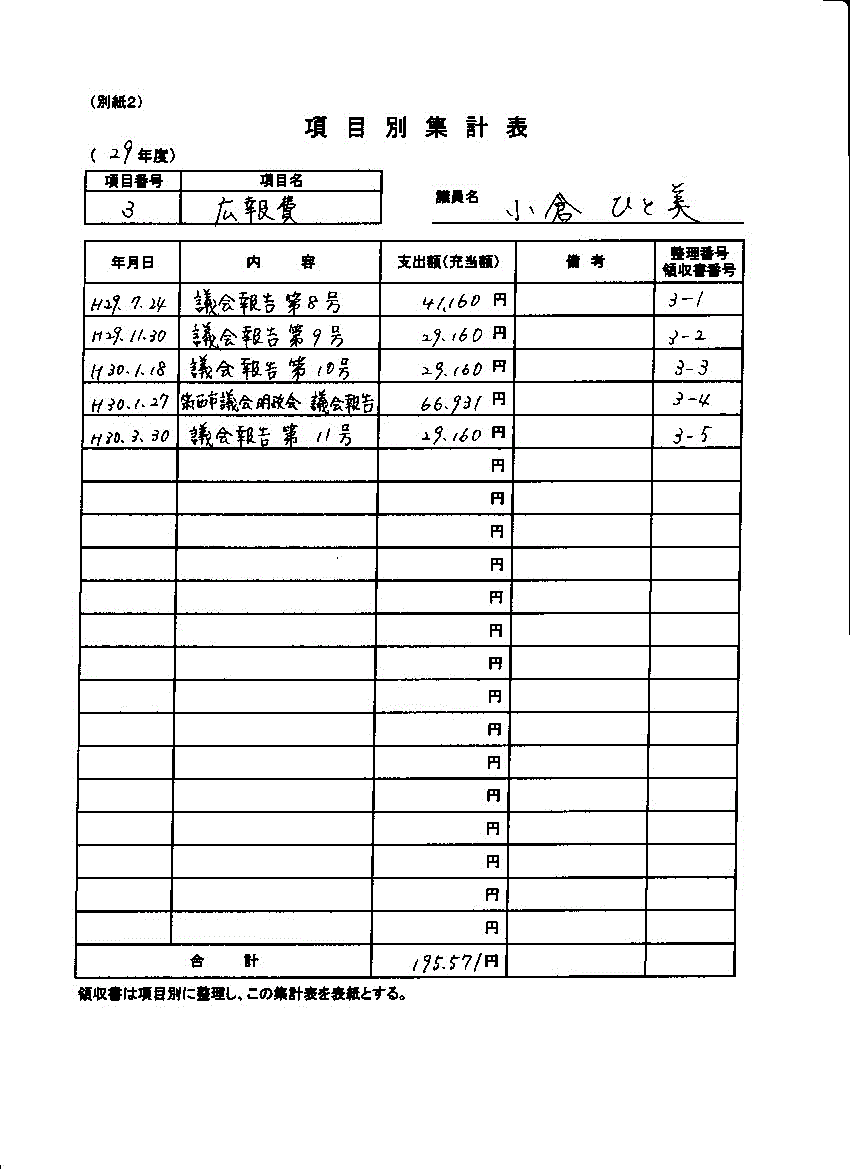 （別紙2）
項目別集計表
（ 29 年度）
項目番号 項目名
3 広報費
議員名 小倉 ひと美
年月日 内容 支出額（充当額） 備考 整理番号 領収書番号
H29.7.24 議会報告第8号 41,160円 3-1
H29.11.30 議会報告第9号 29.160円 3-2
H30.1.18 議会報告第10号 29.160円 3-3
H30.1.27 市議会明政会 議会報告 66.931円 3-4
H30.3.30 議会報告第11号 29.160円 3-5
円
円
円
円
円
円
円
円
円
円
円
円
円
円
円
合計 195.571円
領収書は項目別に整理し、この集計表を表紙とする。